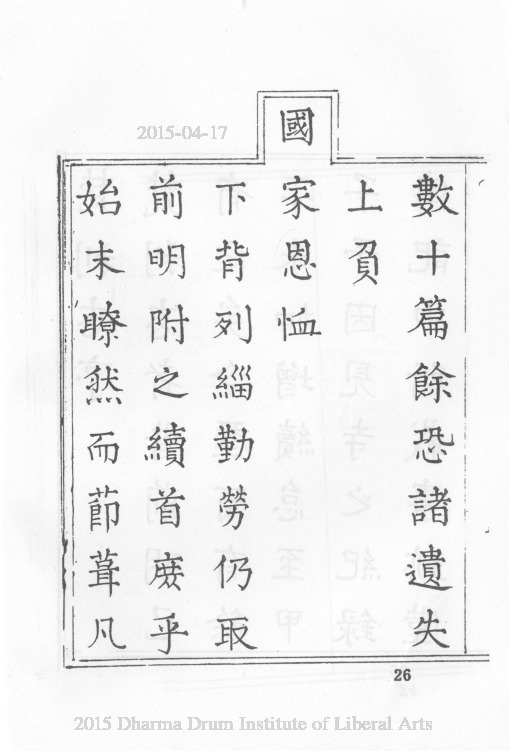 2015-04-17
數十篇餘恐諸遺失
上負
國家恩恤
下背列緇勤勞仍取
前明附之續首庶乎
始末瞭然而莭葺凡
26
2015 Dharma Drum Institute of Liberal Arts